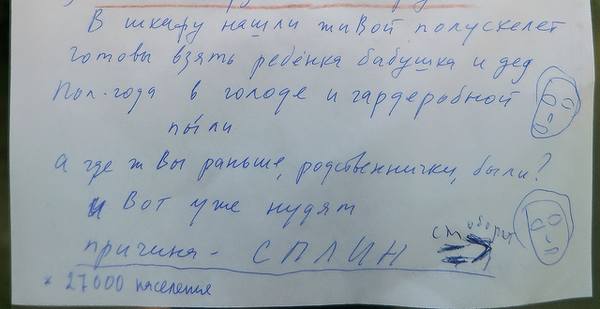 В шкафу нашли жиВой полускелет
готовы взять ребёнка бабушка и дед
Пол-года в голоде и гардеробной
пыли
а где ж Вы раньше, родственнички, были?
и Вот уже нудят
причина - СПЛИН см оборот
* 27000 население